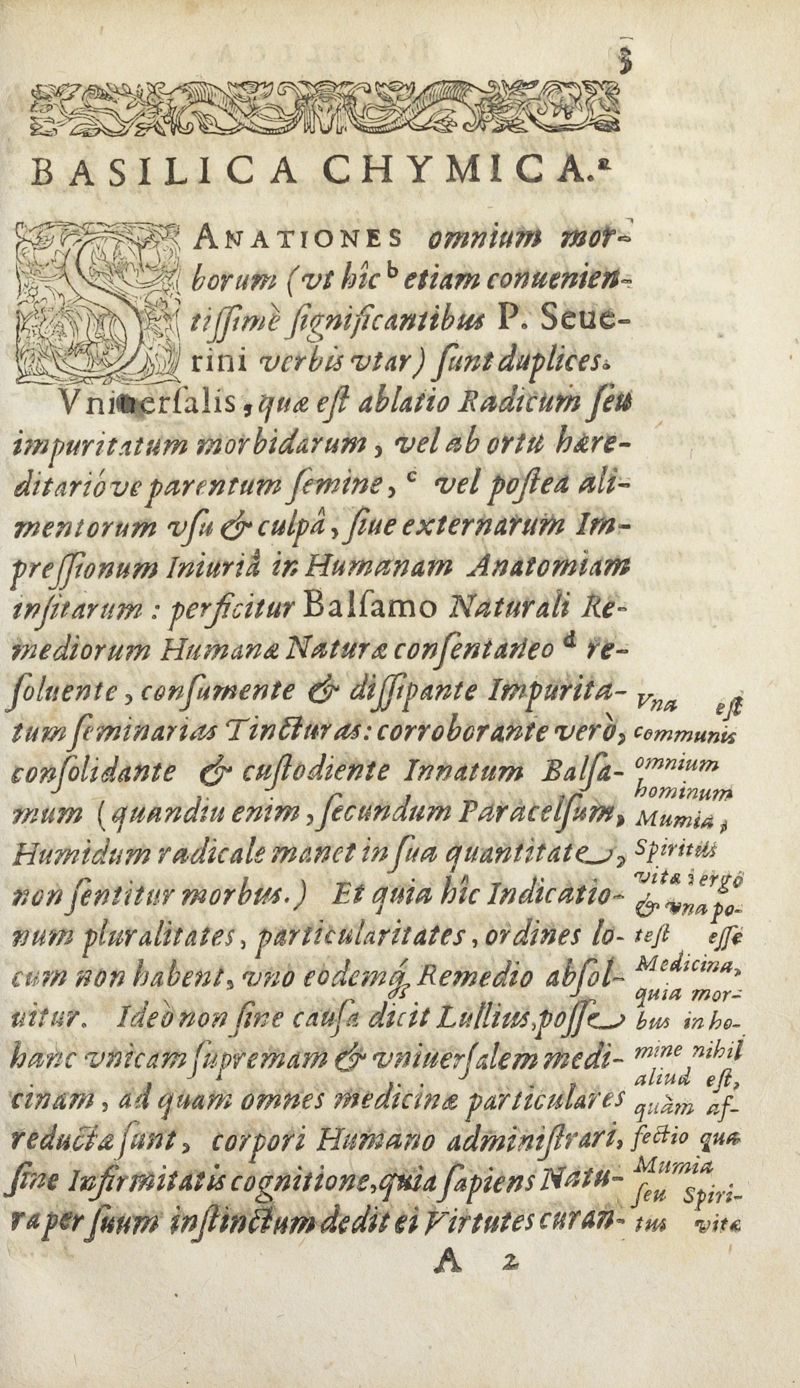 3
BASILICA CHYMICA.ᵃ
SANATIONES omnium mor-
borum (vt hîc ᵇ etiam conuenien-
tiſſimè ſignificantibus P. Seue-
rini verbis vtar) ſunt duplices.
Vniuerſalis, quæ eſt ablatio Radicum ſeu
impuritatum morbidarum, vel ab ortu hære-
ditarióve parentum ſemine, ᶜ vel poſtea ali-
mentorum vſu & culpâ, ſiue externarum Im-
preſſionum Iniuriâ in Humanam Anatomiam
inſitarum : perficitur Balſamo Naturali Re-
mediorum Humanæ Naturæ conſentaneo ᵈ re-
ſoluente, conſumente & diſſipante Impurita-
tum ſeminarias Tincturas: corroborante verò,
conſolidante & cuſtodiente Innatum Balſa-
mum (quandiu enim, ſecundum Paracelſum,
Humidum radicale manet in ſua quantitate,
non ſentitur morbus.) Et quia hîc Indicatio-
num pluralitates, particularitates, ordines lo-
cum non habent, vno eodemq́; Remedio abſol-
uitur. Ideò non ſine cauſa dicit Lullius, poſſe
hanc vnicam ſupremam & vniuerſalem medi-
cinam, ad quam omnes medicinæ particulares
reductæ ſunt, corpori Humano adminiſtrari,
ſine Infirmitatis cognitione, quia ſapiens Natu-
ra per ſuum inſtinctum dedit ei Virtutes curan-
Vna eſt
communis
omnium
hominum
Mumia,
Spiritus
vitæ : ergo
& vna po-
teſt eſſe
Medicina,
quia mor-
bus in ho-
mine nihil
aliud eſt,
quàm af-
fectio qua
Mumia
ſeu Spiri-
tus vitæ
A 2